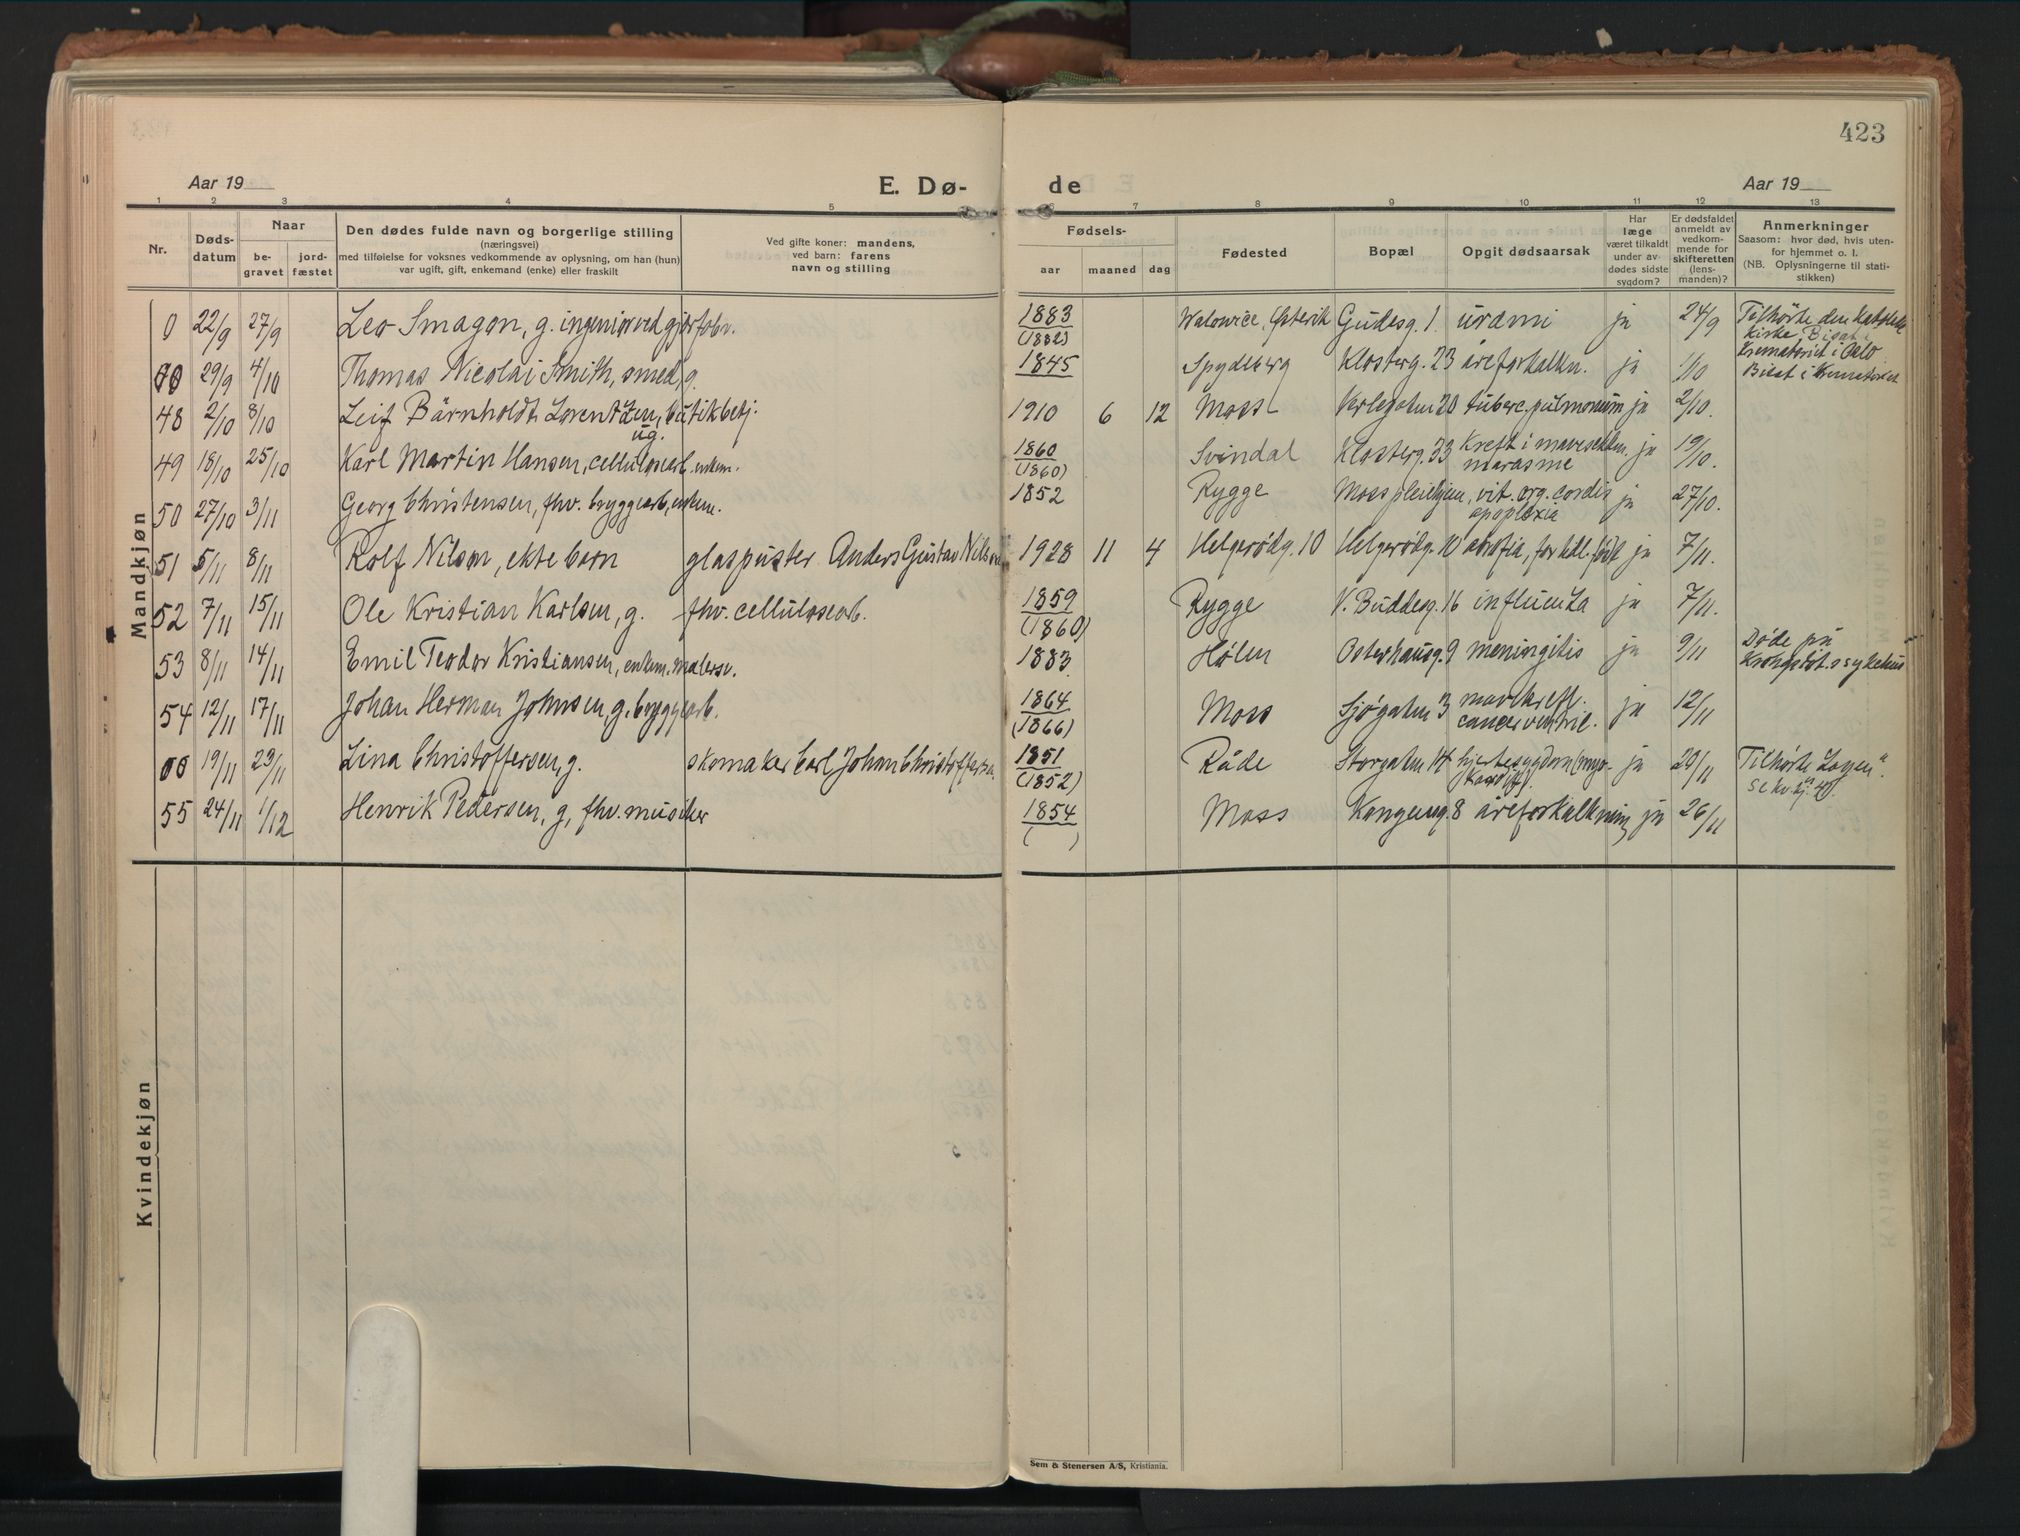 423
Aar 19
E. Dø-
de
Aar 19
1 2 3 4 5 6 7 8 9 10 11 12 13
Nr.
Døds-
datum
Naar
be-
gravet
jord-
fæstet
Den dødes fulde navn og borgerlige stilling
(næringsvei)
med tilføielse for voksnes vedkommende av oplysning, om han (hun)
var ugift, gift, enkemand (enke) eller fraskilt
Ved gifte koner: mandens,
ved barn: farens
navn og stilling
Fødsels-
aar maaned dag
Fødested
Bopæl
Opgit dødsaarsak
Har
læge
været tilkaldt
under av-
dødes sidste
sygdom?
Er dødsfaldet
anmeldt av
vedkom-
mende for
skifteretten
(lens-
manden)?
Anmerkninger
Saasom: hvor død, hvis uten-
for hjemmet o. l.
(NB. Oplysningerne til stati-
stikken)
Mandkjøn
0 22/9 27/9 Leo Smagon, g. ingeniør ved 1883 Walowice, Gudesg. 1 urämi ja 24/9 Tilhørte den katolske
(1882) kirke Bisat i
Krematoriet i Oslo
29/9 4/10 Thomas Nicolai Smith, smed, g. 1845 Spydeberg Klosterg. 23 åreforkalkn. ja 1/10 Bisat i Krematoriet
48 2/10 8/10 Leif Bärnholdt Lorentzen, butikbetj. 1910 6 12 Moss 20 tuberc. pulmonum ja 2/10.
ug.
49 18/10 25/10 Karl Martin Hansen, cellulosearb. enkem. 1860 Svindal Klosterg. 33 Kreft i mavesekken. ja 19/10.
(1860) marasme
50 27/10 3/11 Georg Christensen, fhv. bryggearb, enkem. 1852 Rygge Moss pleiehjem, vit. org. cordis ja 27/10.
apoplexia
51 5/11 8/11 Rolf Nilsen, ekte barn glaspuster Anders Gustav Nilsen 1928 11 4 Helgerødg. 10 Helgerødg. 10 atrofia, for tidl. født ja 7/11.
52 7/11 15/11 Ole Kristian Karlsen, g. fhv. cellulosearb. 1859 Rygge V. Buddesg. 16 influenza ja 7/11.
(1860)
53 8/11 14/11 Emil Teodor Kristiansen, enkem. malersv. 1883 Hølen Osterhausg. 9 meningitis ja 9/11 Døde på
sykehus
54 12/11 17/11 Johan Herman Johnsen, g. bryggearb. 1864 Moss Sjøgaten 3 mavekreft. ja 12/11
(1866) cancer ventric.
19/11 23/11 Lina Christoffersen, g. skomaker Carl Johan Christoffersen 1851 Råde Storgaten 14 hjertesygdom (myo- ja 20/11 Tilhørte
(1852) kardit).
55 24/11 1/12 Henrik Pedersen, g, fhv. musiker 1854 Moss Kongensg. 8 åreforkalkning ja 26/11
( )
Kvindekjøn
Sem & Stenersen A/S, Kristiania.